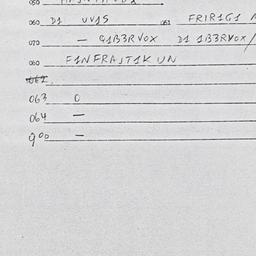 050
060 D1 UV1S 061 FRIR1G1
070 — G1B3RVOX D1 1B3RVOX/
080 F1NFRAJT1K UN
062
063 0
064 —
900 —